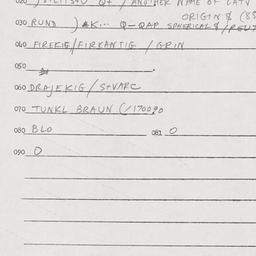 020
ANOTHER NAME OF
ORIGIN & (
030 RUND ) AK... Q-QAP SPHERICAL &
040 FIREKIG/FIRKANTIG / GRIN
050
060 DRAJEKIG/SVARC
070 TUNKL BRAUN (/170090
080 BLO 081 0
090 0